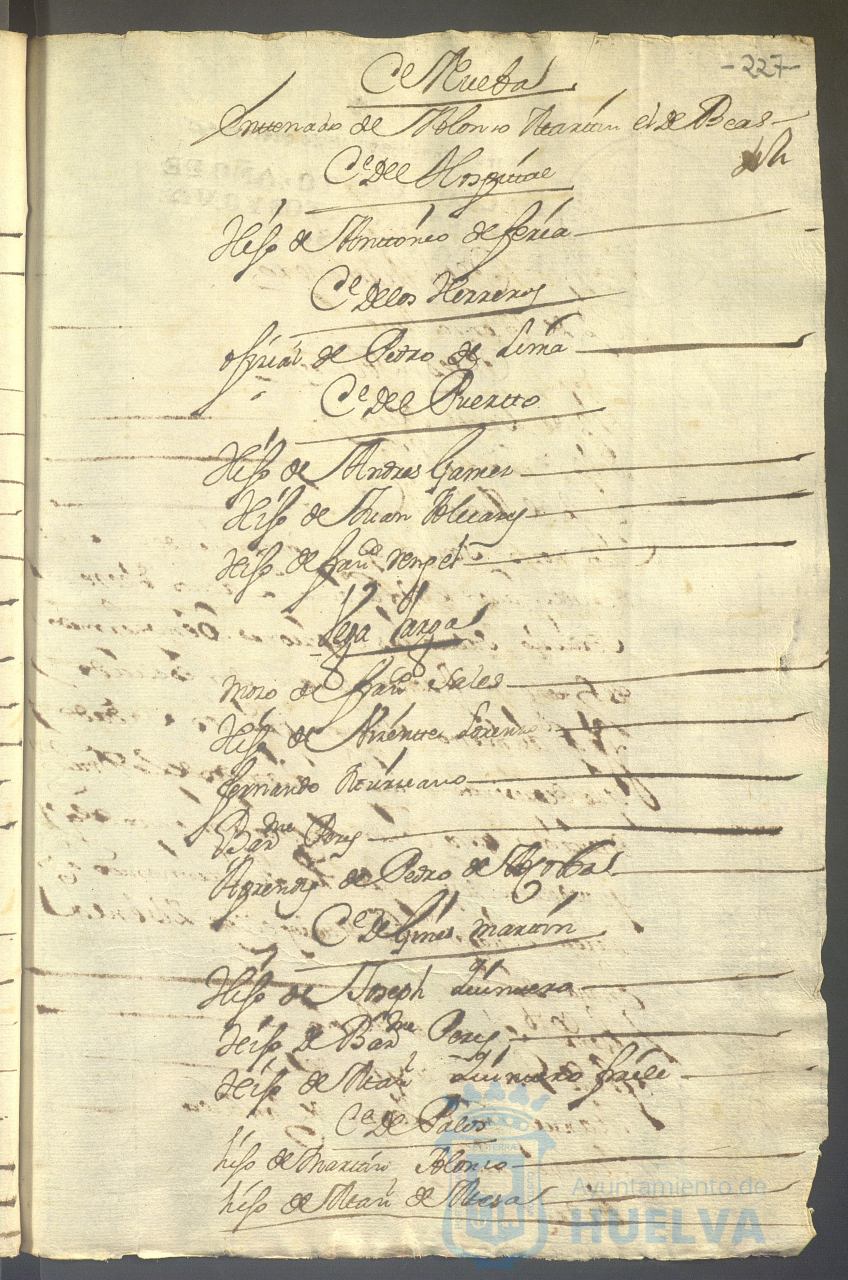 -227-
Ce Nueba
Entenado de Alonso Martin el de Beas
Ce Del Hospital
Hijo de Anttonio de feria
Ce De los Herreros
ofizial de Pedro de Lima
Ce Del Puertto
Hijo de Andres Gamez
Hijo de Juan
Hijo de franco Renjel
Vega larga
mozo de franco Sales
Hijo de Lorenzo
fernando
Barme Perez
Aprendiz de Pedro de
Ce De Gines martin
Hijo de Joseph Quintera
Hijo de Barme Perez
Hijo de Quintero fraile
Ce De Palos
hijo de Martin Alonso
hijo de de Mesa
Ayuntamiento de
HUELVA